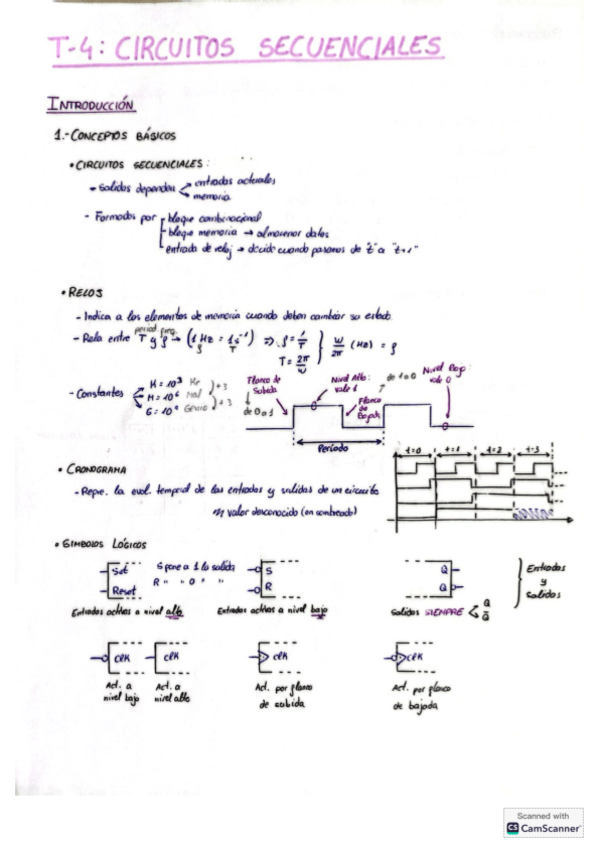 T-4: CIRCUITOS SECUENCIALES
INTRODUCCIÓN
1.- CONCEPTOS BÁSICOS
• CIRCUITOS SECUENCIALES:
- Salidas dependen entradas actuales
memoria
- Formados por bloque combinacional
- bloque memoria → almacenar datos
entrada de reloj → decide cuando pasamos de "t" a "t+1"
• RELOJ
- Indica a los elementos de memoria cuando deben cambiar su estado.
- Rela entre T y f → (1 Hz = 1 s⁻¹) ⇒ f = 1/T
T = 2π/w
w/2π (Hz) = f
- Constantes K = 10³
M = 10⁶
G = 10⁹
+3
+3
Flanco de Subida
de 0 a 1
Nivel Alto: vale 1
Flanco de Bajada
de 1 a 0
Nivel Bajo: vale 0
Período
• CRONOGRAMA
- Repre. la evol. temporal de las entradas y salidas de un circuito
valor desconocido (en sombreado)
t=0 t=1 t=2 t=3
• SIMBOLOS LÓGICOS
Set
Reset
S pone a 1 la salida
R " " 0 " "
Entradas activas a nivel alto
S
R
Entradas activas a nivel bajo
Q
Q
Salidas SIEMPRE Q
Q̄
Entradas y Salidas
CLK
Act. a nivel bajo
CLK
Act. a nivel alto
CLK
Act. por flanco de subida
CLK
Act. por flanco de bajada
Scanned with
CS CamScanner